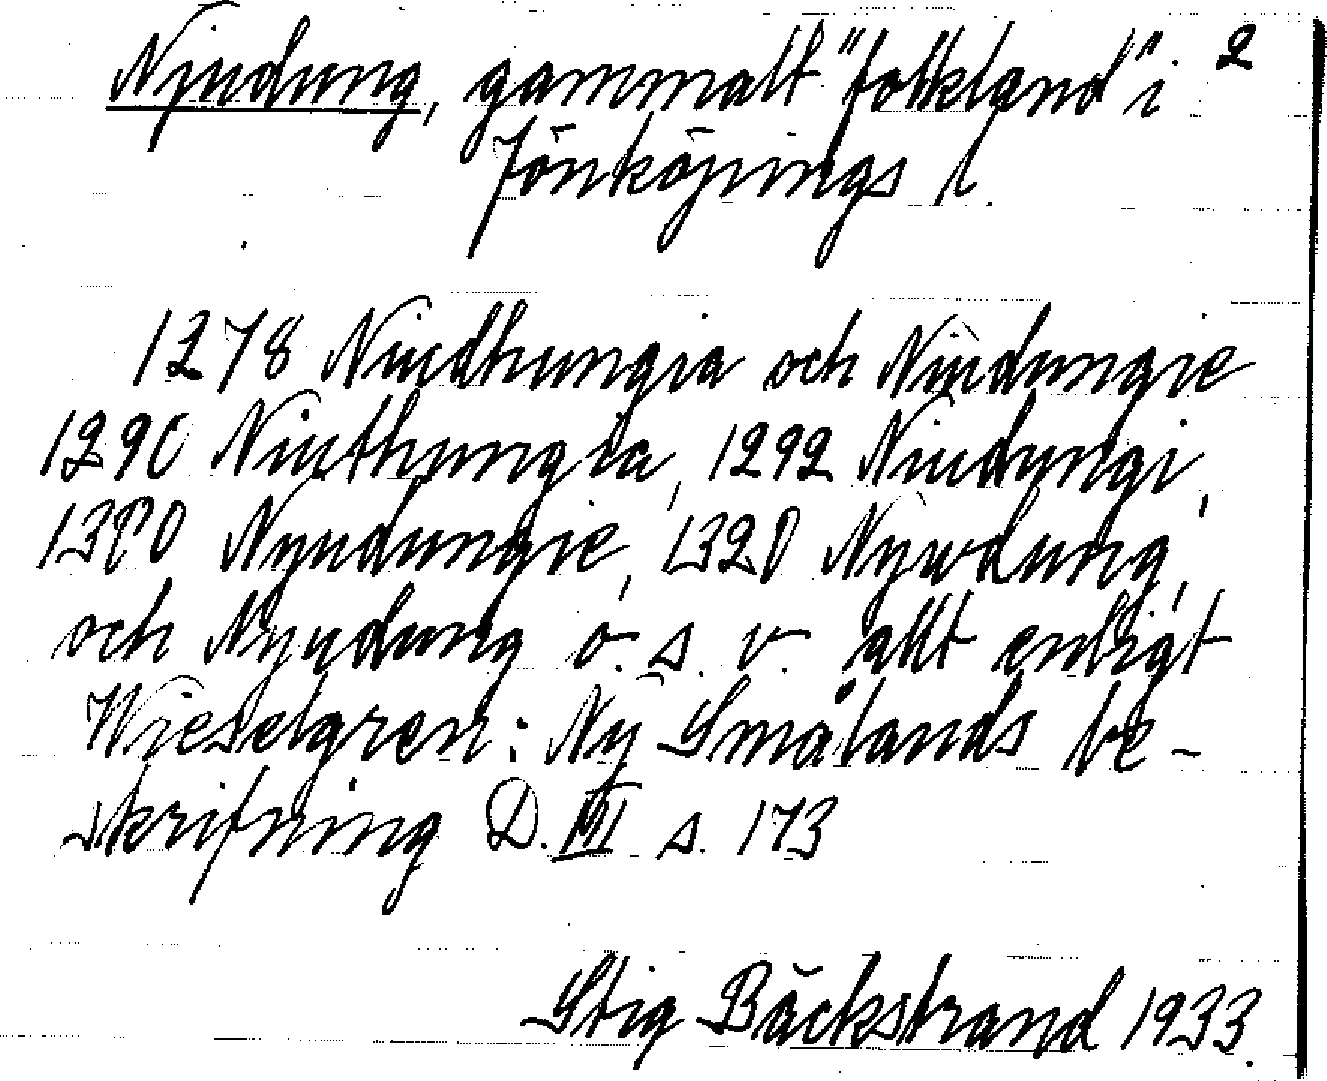 Njudung, gammalt "folkland" i 2
Jönköpings l.
1278 Niudhungia och Niudungie
1290 Niuthungia, 1292 Niudungi,
1300 Nyudungie, 1320 Nywdung,
och Nyudung o. s. v. allt enligt
Wieselgren: Ny Smålands be-
skrifning D. III s. 173
Stig Bäckstrand 1933.